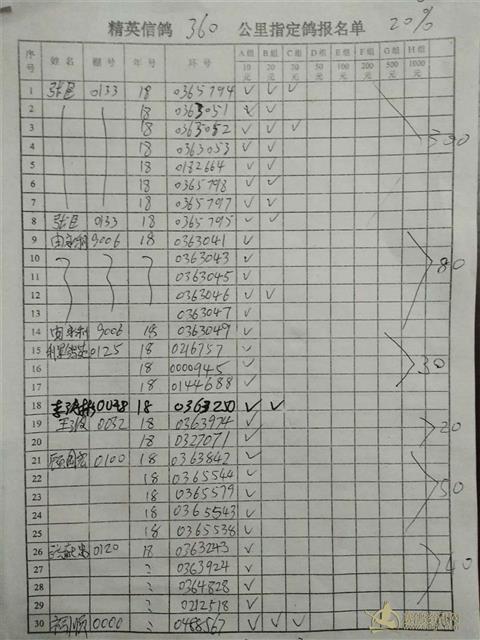 精英信鸽 360 公里指定鸽报名单 20%
序号 姓名 棚号 年号 环号 A组10元 B组20元 C组30元 D组50元 E组100元 F组200元 G组500元 H组1000元
1 张 0133 18 0365794 ✓ ✓ ✓
2 18 0363051 ✓ ✓
3 18 0363052 ✓ ✓ ✓
4 18 0363053 ✓ ✓
5 18 0182664 ✓ ✓
6 18 0365798 ✓ ✓
7 18 0365797 ✓ ✓
8 张 0133 18 0365795 ✓ ✓
9 9006 18 0363041 ✓
10 0363043 ✓
11 0363045 ✓
12 0363046 ✓ ✓ 80
13 0363047 ✓
14 9006 18 0363049 ✓
15 0125 18 0216757 ✓
16 18 0000945 ✓ 30
17 18 0144688 ✓
18 18 0363250 ✓ ✓
19 王 0032 18 0363974 ✓
20 18 0327071 ✓ 20
21 0100 18 0363842 ✓
22 18 0365544 ✓
23 18 0365579 ✓ 50
24 18 0365543 ✓
25 18 0365538 ✓
26 张 0120 18 0363243 ✓
27 0363924 ✓ 40
28 0364828 ✓
29 0212518 ✓
30 0000 0488567 ✓ ✓ ✓